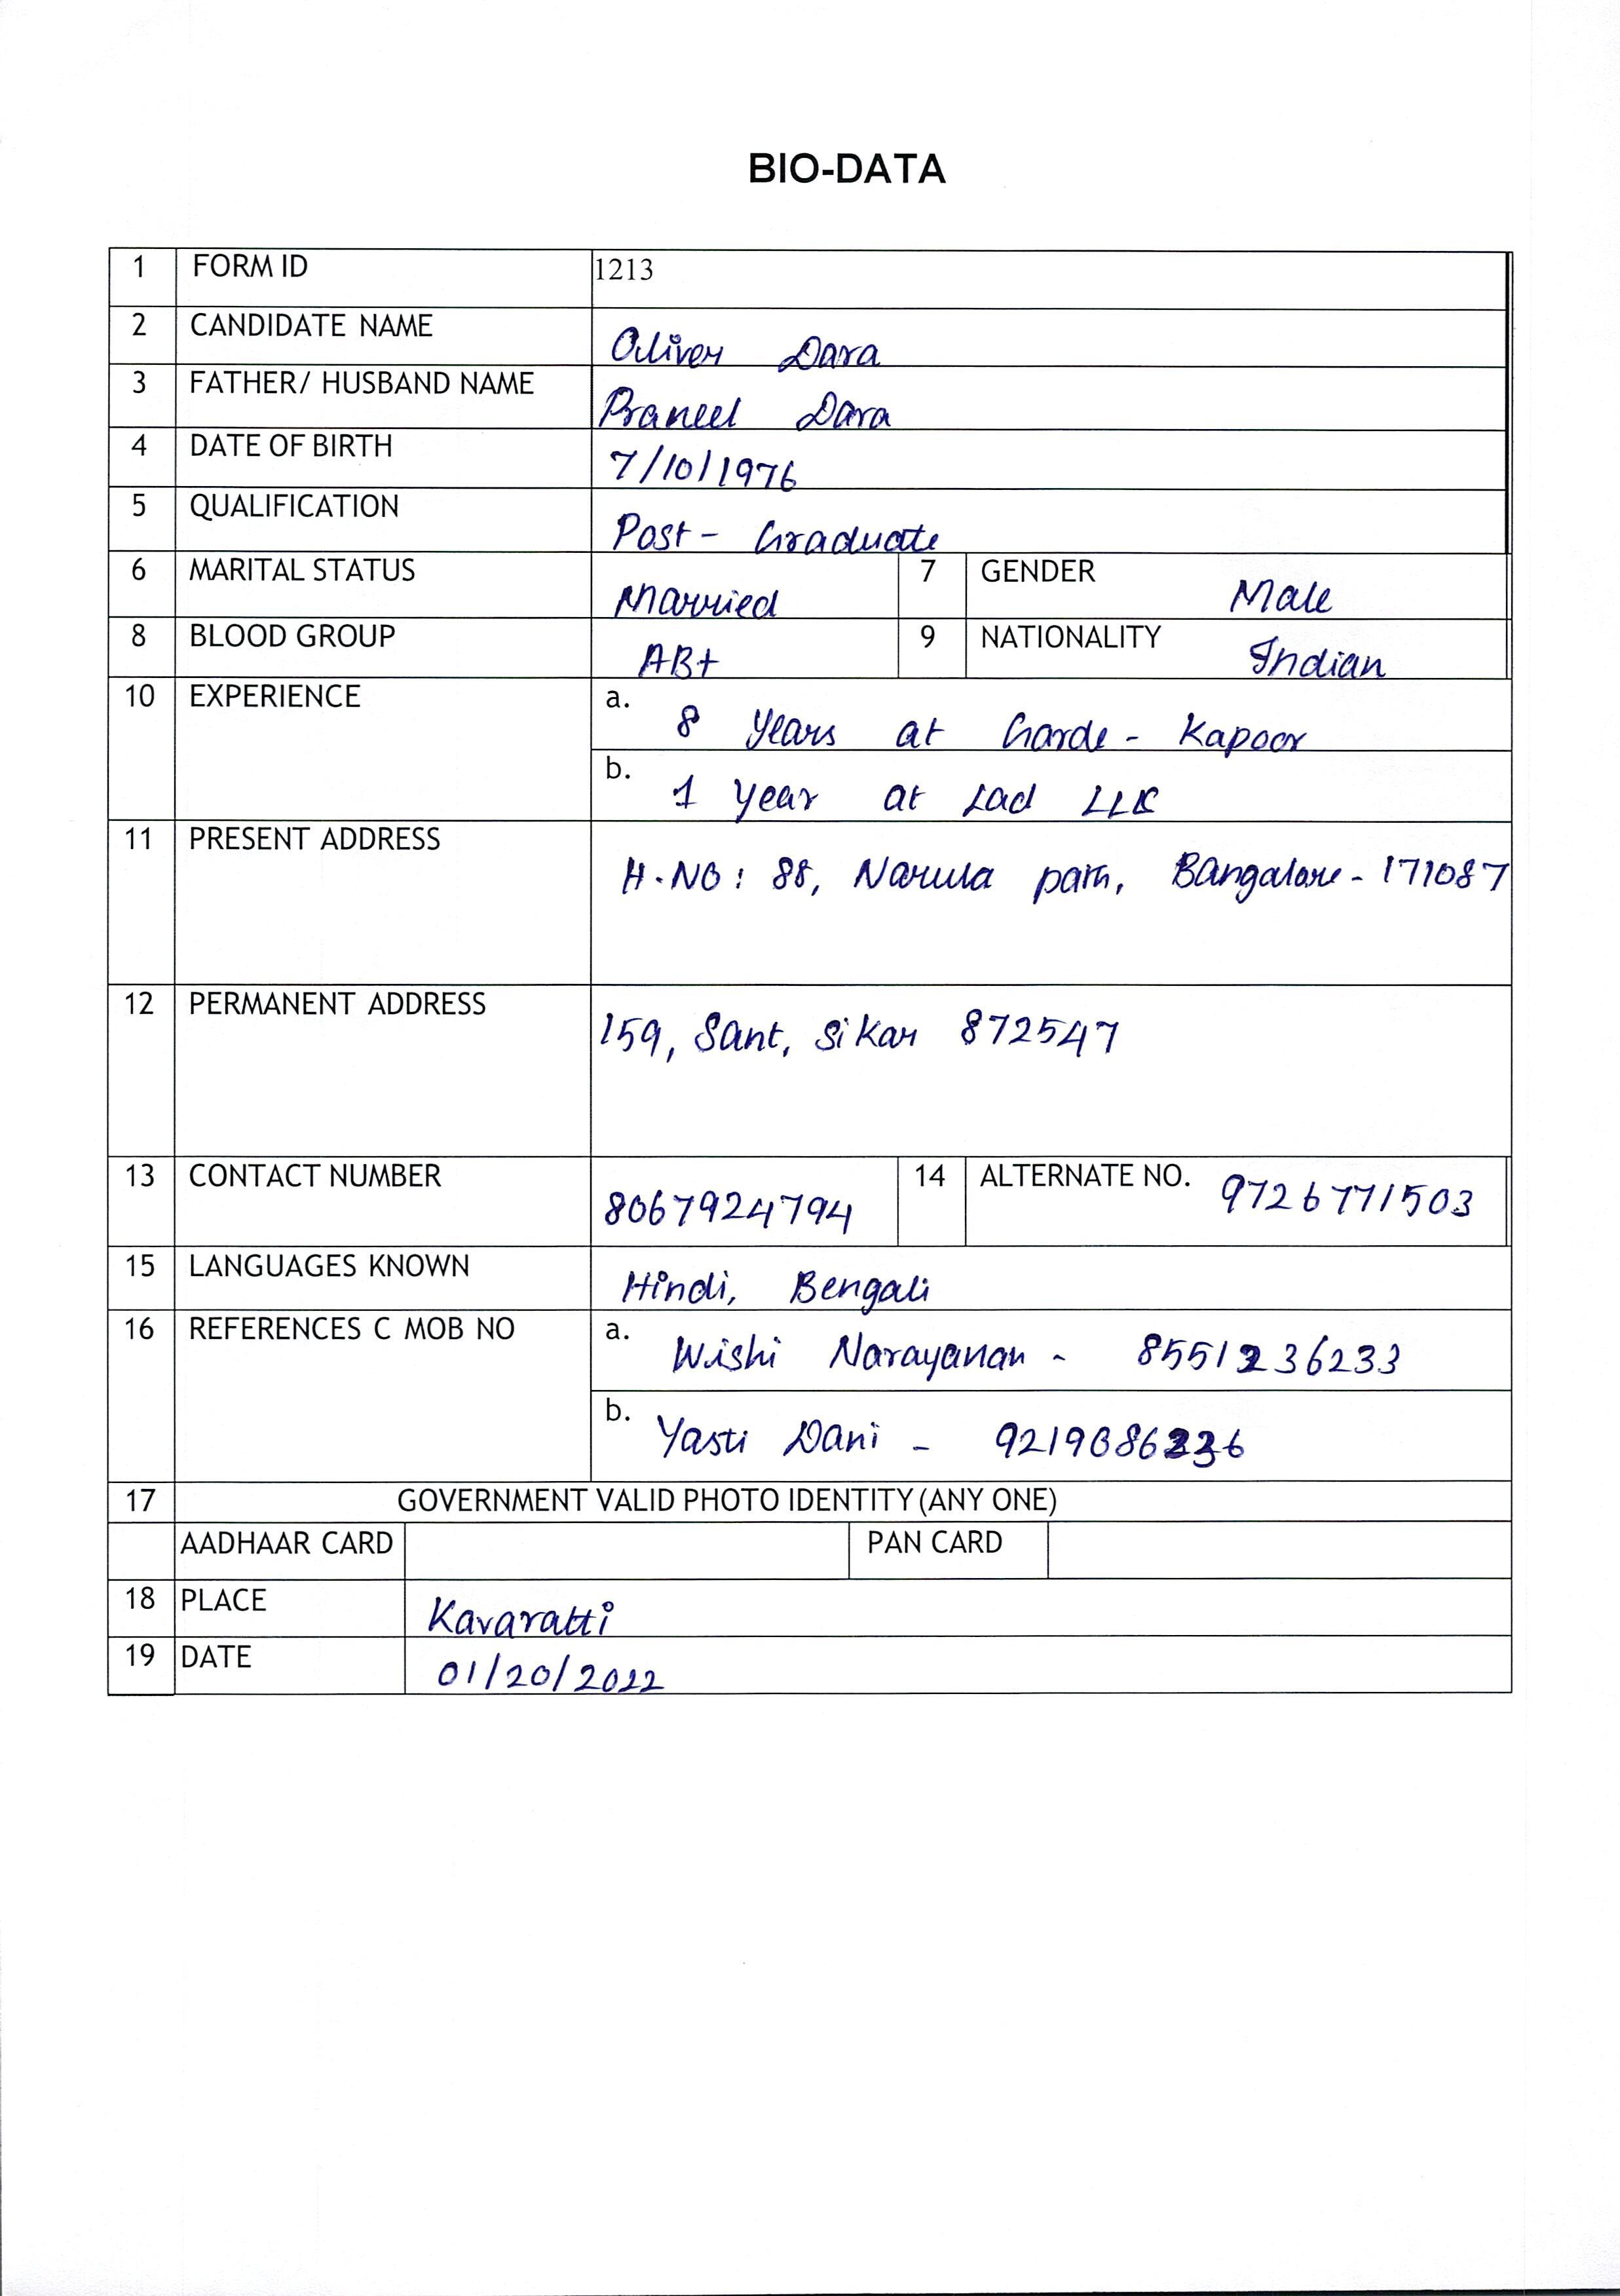 BIO-DATA
1 FORM ID 1213
2 CANDIDATE NAME Oliver Dara
3 FATHER/ HUSBAND NAME Praneel Dara
4 DATE OF BIRTH 7/10/1976
5 QUALIFICATION Post - Graduate
6 MARITAL STATUS Married 7 GENDER Male
8 BLOOD GROUP AB+ 9 NATIONALITY Indian
10 EXPERIENCE a. 8 years at Garde - Kapoor
b. 1 year at Lad LLC
11 PRESENT ADDRESS H.NO: 88, Narula path, Bangalore - 171087
12 PERMANENT ADDRESS 159, Sant, Sikar 872547
13 CONTACT NUMBER 8067924794 14 ALTERNATE NO. 9726771503
15 LANGUAGES KNOWN Hindi, Bengali
16 REFERENCES C MOB NO a. Wishi Narayanan - 8551236233
b. Yasti Dani -
17 GOVERNMENT VALID PHOTO IDENTITY (ANY ONE)
AADHAAR CARD PAN CARD
18 PLACE Kavaratti
19 DATE 01/20/2022